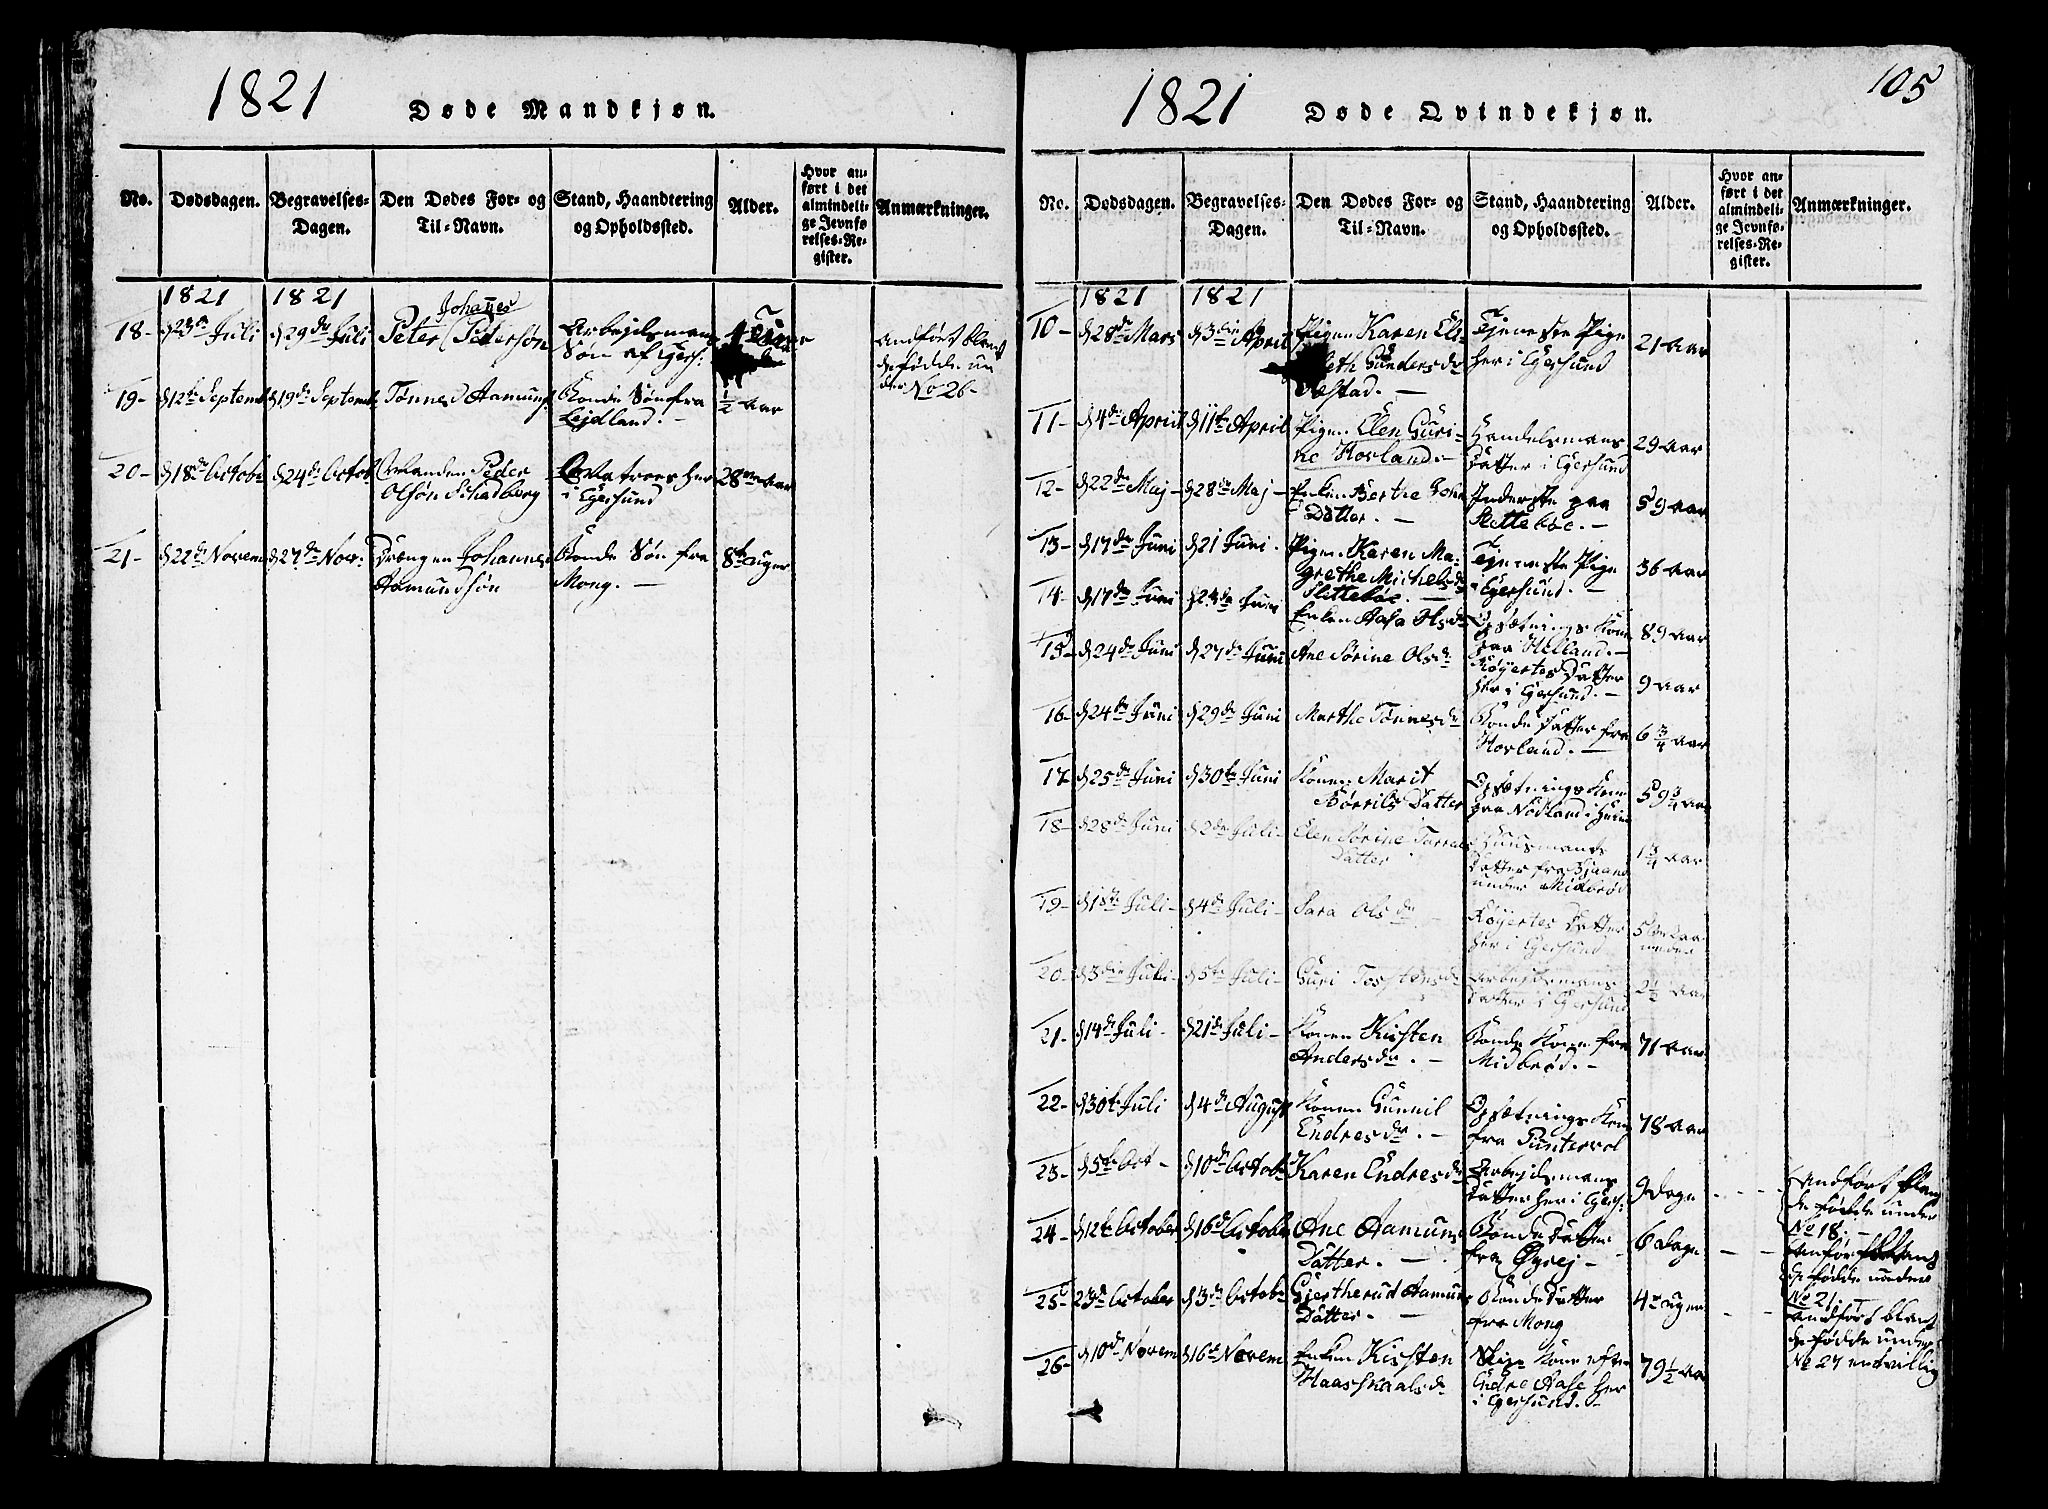 1821
Døde Mandkjøn.
No.
Dødsdagen.
Begravelses-
Dagen.
Den Dødes For- og
Til-Navn.
Stand, Haandtering
og Opholdssted.
Alder.
Hvor an-
ført i det
almindeli-
ge Jevnfø-
relses-Re-
gister.
Anmærkninger.
1821
1821
18-
Juli
29de Juli
Johannes
Peter Pedersøn
Arbejdsmans
Søn af Egers:
Andført blant
de fødde un
der No 26-
19-
d 12te Septemb
d 19de Septemb
Tønnes Aamunds
Bonde Søn fra
Lejdland. -
1/2 Aar
20-
d 18de Octob
d 24de Octob
Peder
Olsøn Schadberg
Matroes her
i Egersund
28 Aar
21-
d 22de Novem
d 27de Nov:
Drængen Johannes
Aamundsøn
Bonde Søn fra
Mong. -
8te uger
105
1821
Døde Qvindekjøn.
No.
Dødsdagen.
Begravelses-
Dagen.
Den Dødes For- og
Til-Navn.
Stand, Haandtering
og Opholdssted.
Alder.
Hvor an-
ført i det
almindeli-
ge Jevnfø-
relses-Re-
gister.
Anmærkninger.
1821
1821
10-
d 28de Mars
d 3die April
Pigen Karen Eli-
beth Gunders dr
-
Tjeneste Pige
her i Egersund
21 Aar
11-
d 4de April
d 11te April
Pigen Elen Guri-
ne Hovland. -
Handelsmans
Datter i Egersund
29 Aar
12-
d 22de Maj -
d 28de Maj -
Enken Berthe John
Datter. -
Inderste paa
Slettebøe. -
59 Aar
13-
d 17de Juni
d 21 Juni.
Pigen Karen Ma-
grethe Michels dr
Slettebøe. -
Tjeneste Pige
i Egersund. -
36 Aar
14-
d 17de Juni
Juni
Enken Aasa
Opsætnings Kone
paa Helland. -
89 Aar
15-
d 24de Juni
d 27de Juni
Ane Sørine Ols dr
Køyertes Datter
her i Egersund. -
9 Aar
16-
d 24de Juni
d 29de Juni
Marthe Tønnes dr
Bonde Datter fra
Hovland. -
6 3/4 Aar
17-
d 25de Juni
d 30te Juni
Konen Marit
Børrils Datter
Opsætnings Kone
paa Nodland i
59 3/4 Aar
18-
d 28de Juni
d 2den Juli -
Elen Sørine
Datter
Huusmands
Datter fra
under Midbrød
1 3/4 Aar
19-
d 1ste Juli -
d 4de Juli -
Sara Ols dr -
Køyertes Datter
her i Egersund
20-
d 3die Juli -
d 5te Juli -
Guri Torstens dr
Arbejdsmans
Datter i Egersund
2 1/2 Aar
21-
d 14de Juli -
d 21de Juli -
Konen Kirsten
Anders dr. -
Bonde Kone fra
Midbrød. -
71 Aar
22-
d 30te Juli
d 4de August
Konen Gunnil
Endres dr. -
Opsætnings Kone
fra Puntervol
78 Aar
23-
d 5te Oct -
d 10de Octob
Karen Endres dr
Arbejdsmans
Datter her i Egers:
9 Dage
Andført blant
de fødde under
No 18. -
24-
d 12te October
d 16de October
Ane Aamunds
Datter. -
Bonde Datter
fra Øgrej -
6 Dage
de fødde under
No 21. -
25-
23de October
Giertherud Aamunds
Datter. -
Bonde Datter
fra Mong
4re uger
Andført blant
de fødde under
No 27
26-
d 10de Novem
d 16de Novem
Enken Kirsten
Haasskaals dr
Kone efter
Endre Aase her
i Egersund. -
79 1/2 Aar